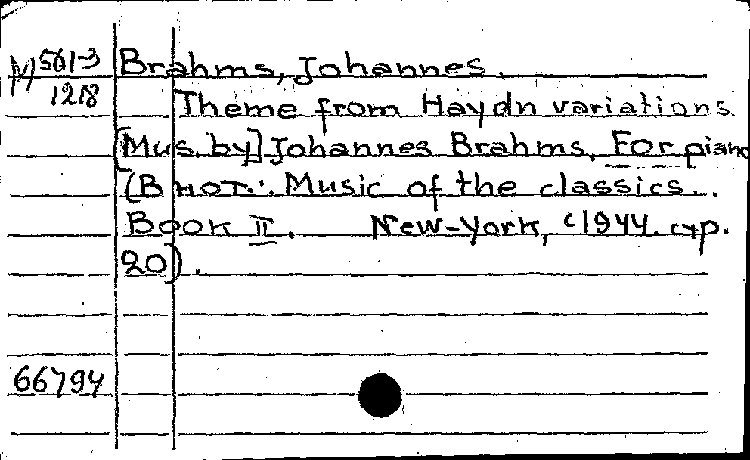 М 561-3 Brahms, Johannes.
1218 Theme from Haydn variations.
[Mus. by] Johannes Brahms. For piano
(В нот.: Music of the classics..
Book II. New-York, c1944. стр.
20).
66794